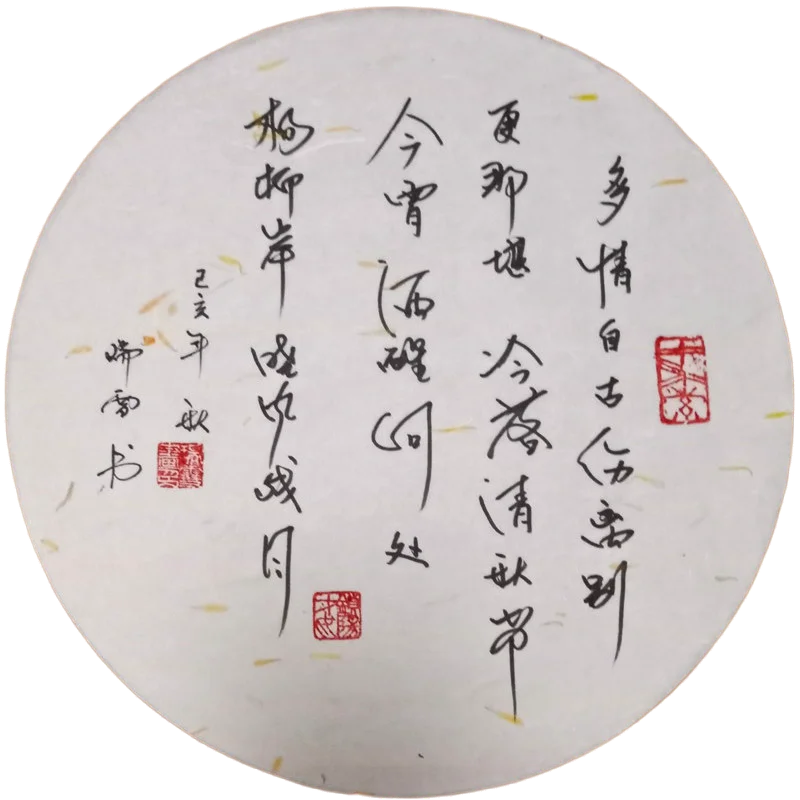 多情自古伤离别
更那堪 冷落清秋节
今宵酒醒何处
杨柳岸 晓风残月
己亥年 秋
瑞雪书